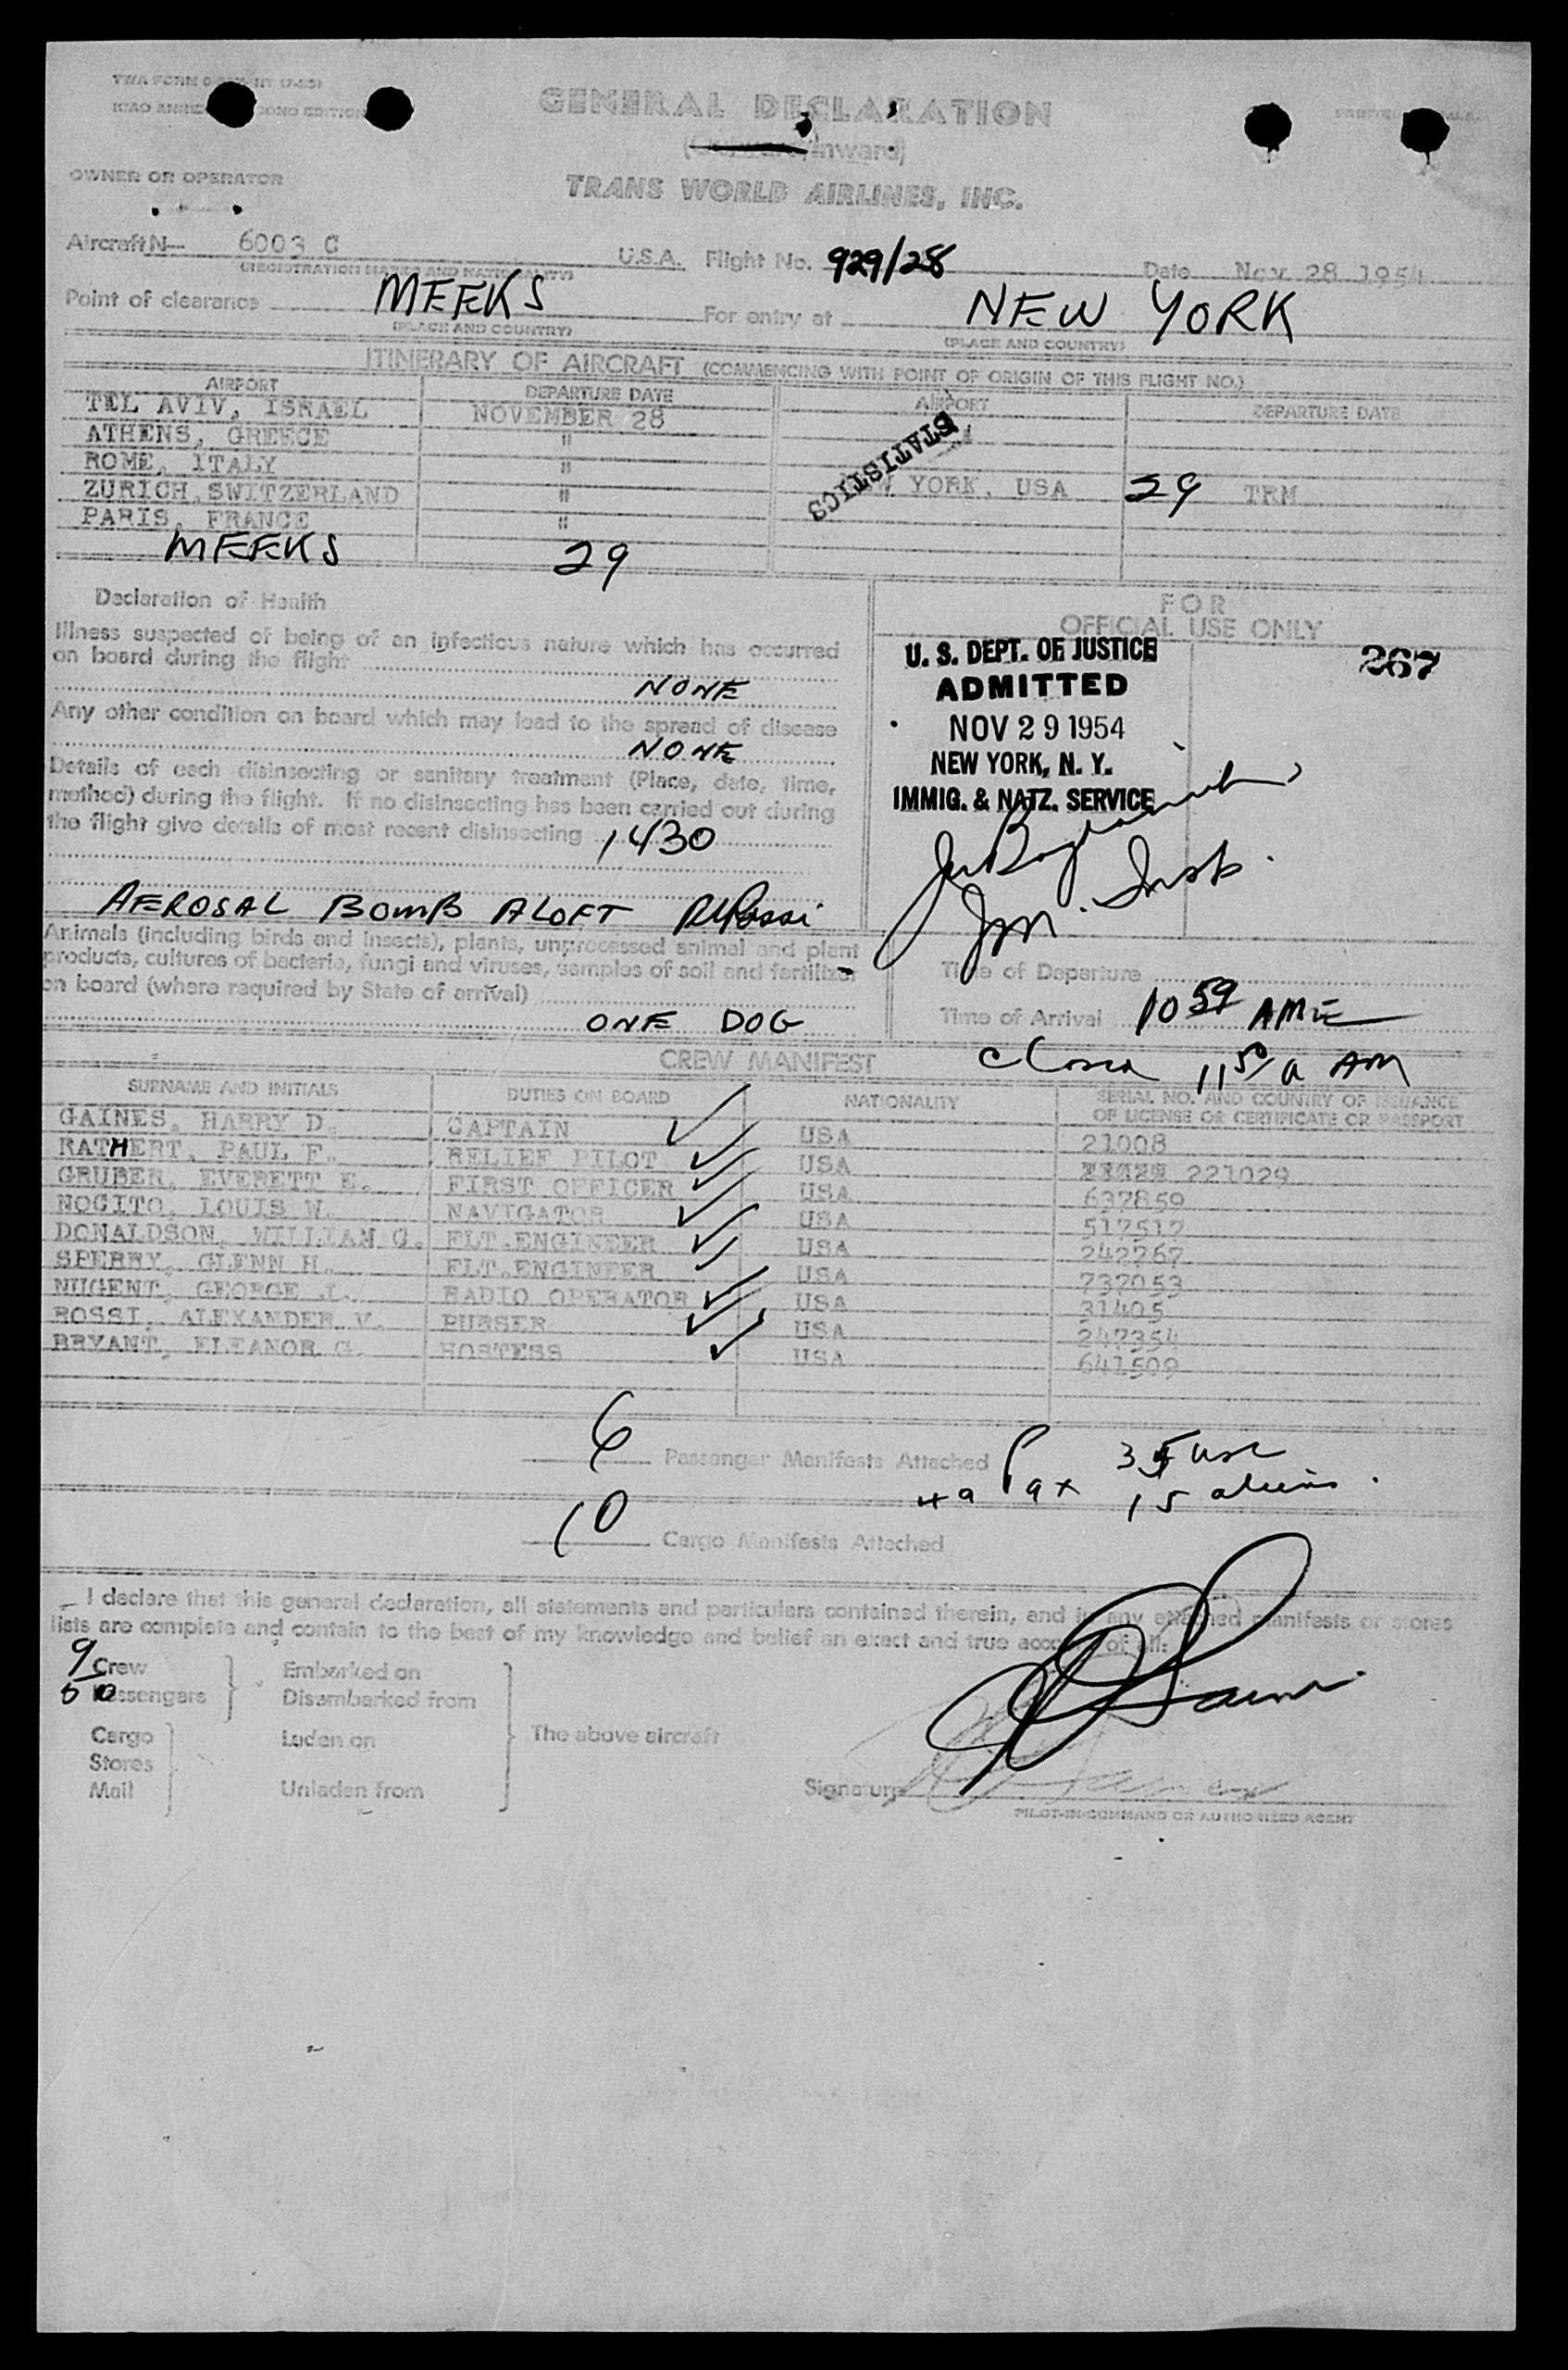 GENERAL DECLARATION
Inward)
OWNER OR OPERATOR
TRANS WORLD AIRLINES, INC.
Aircraft N— 6003 C U.S.A. Flight No. 929/28 Date Nov 28 1954
(REGISTRATION MARKS AND NATIONALITY)
Point of clearance MEEKS For entry at NEW YORK
(PLACE AND COUNTRY) (PLACE AND COUNTRY)
ITINERARY OF AIRCRAFT (COMMENCING WITH POINT OF ORIGIN OF THIS FLIGHT NO.)
AIRPORT DEPARTURE DATE AIRPORT DEPARTURE DATE
TEL AVIV, ISRAEL NOVEMBER 28
ATHENS, GREECE "
STATISTICS
ROME, ITALY "
ZURICH, SWITZERLAND " YORK, USA 29 TRM
PARIS, FRANCE "
MEEKS 29
Declaration of Health
Illness suspected of being of an infectious nature which has occurred
on board during the flight
NONE
Any other condition on board which may lead to the spread of disease
NONE
Details of each disinsecting or sanitary treatment (Place, date, time,
method) during the flight. If no disinsecting has been carried out during
the flight give details of most recent disinsecting 1430
AEROSAL BOMB ALOFT
Animals (including birds and insects), plants, unprocessed animal and plant
products, cultures of bacteria, fungi and viruses, samples of soil and fertilizer
on board (where required by State of arrival)
ONE DOG
FOR
OFFICIAL USE ONLY
267
U. S. DEPT. OF JUSTICE
ADMITTED
NOV 29 1954
NEW YORK, N. Y.
IMMIG. & NATZ. SERVICE
Time of Departure
Time of Arrival 10 59 AM
11 50 AM
CREW MANIFEST
SURNAME AND INITIALS DUTIES ON BOARD NATIONALITY SERIAL NO. AND COUNTRY OF ISSUANCE
OF LICENSE OR CERTIFICATE OR PASSPORT
GAINES, HARRY D. CAPTAIN USA 21008
RATHERT, PAUL F. RELIEF PILOT USA 221029
GRUBER, EVERETT E. FIRST OFFICER USA 637859
NOCITO, LOUIS N. NAVIGATOR USA 517512
DONALDSON, WILLIAM G. FLT.ENGINEER USA 242267
SPERRY, GLENN H. FLT.ENGINEER USA 737053
NUGENT, GEORGE J. RADIO OPERATOR USA 31405
ROSSI, ALEXANDER V. PURSER USA 247354
BRYANT, ELEANOR G. HOSTESS USA 641509
6 Passenger Manifests Attached Pax 35 usc
15 aliens
10 Cargo Manifests Attached
I declare that this general declaration, all statements and particulars contained therein, and in any attached manifests or stores
lists are complete and contain to the best of my knowledge and belief an exact and true account of all:
9 Crew Embarked on
50 Passengers Disembarked from
Cargo Laden on The above aircraft
Stores
Mail Unladen from
Signature
PILOT-IN-COMMAND OR AUTHORIZED AGENT